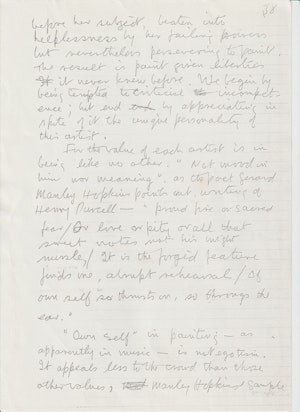 58
before her subject, beaten into
helplessness by her failing powers
but nevertheless persevering to paint.
The result is paint given liberties
it never knew before. We begin by
being tempted to criticise incompet-
ence; but end by appreciating in
spite of it the unique personality of
this artist.
For the value of each artist is in
being like no other. "Not mood in
him nor meaning", as the poet Gerard
Manley Hopkins points out, writing of
Henry Purcell — "proud fire or sacred
fear / Or love or pity or all that
sweet notes not his might
nursle / It is the forged feature
finds me, abrupt rehearsal / Of
own self so thrusts on, so throngs the
ear."
"Own self" in painting — as
apparently in music — is not egotism.
It appeals less to the crowd than those
other values, Manley Hopkins